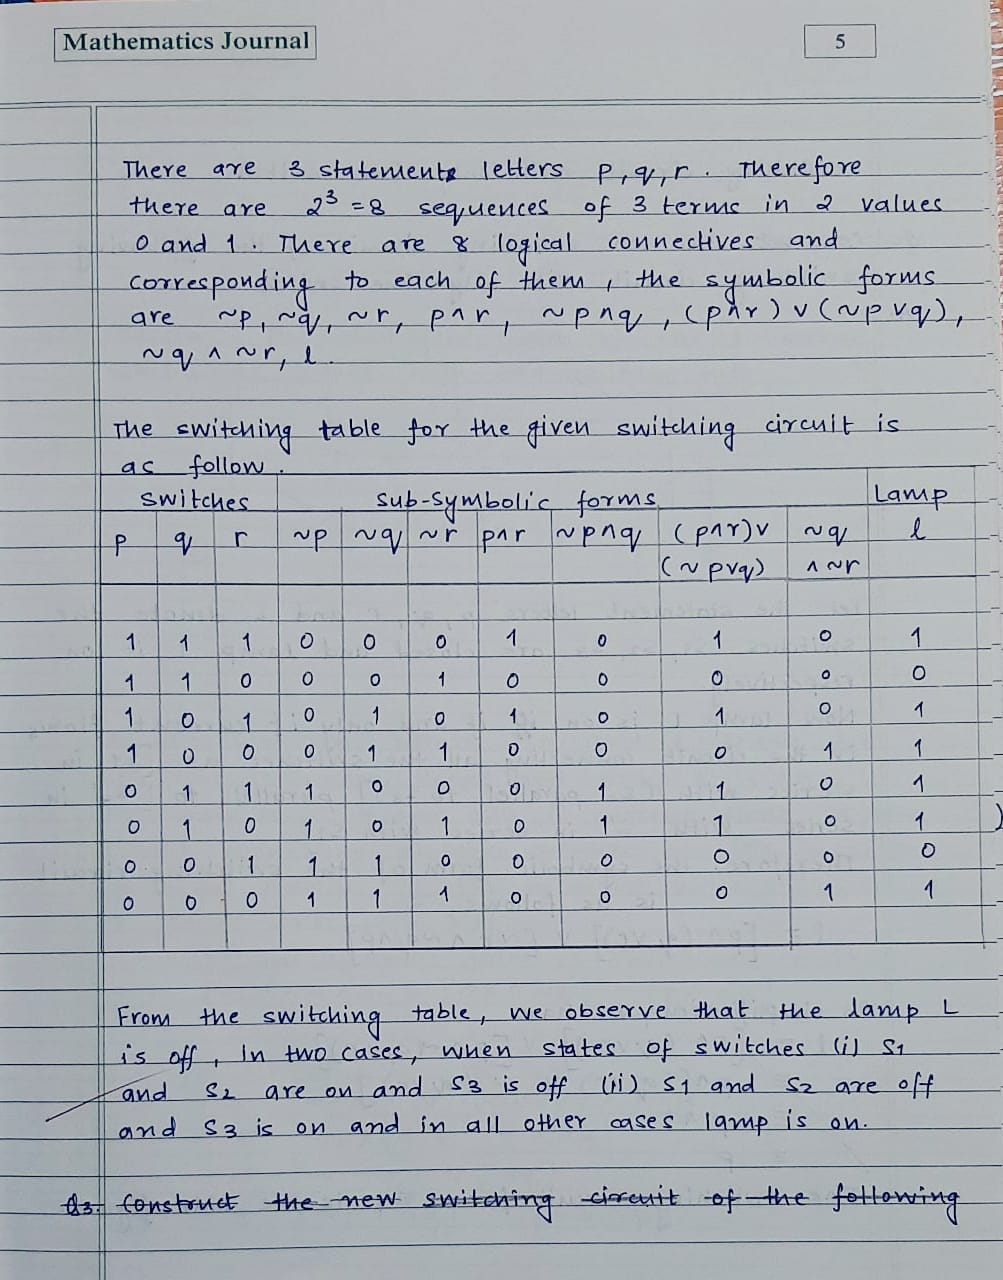 Mathematics Journal
5
There are 3 statements letters p, q, r. Therefore
there are 2³ = 8 sequences of 3 terms in 2 values
0 and 1. There are 8 logical connectives and
corresponding to each of them, the symbolic forms
are ~p, ~q, ~r, p∧r, ~p∧q, (p∧r)∨(~p∨q),
~q ∧ ~r, l.
The switching table for the given switching circuit is
as follow.
switches sub-symbolic forms Lamp
p q r ~p ~q ~r p∧r ~p∧q (p∧r)∨ ~q l
(~p∨q) ∧~r
1 1 1 0 0 0 1 0 1 0 1
1 1 0 0 0 1 0 0 0 0 0
1 0 1 0 1 0 1 0 1 0 1
1 0 0 0 1 1 0 0 0 1 1
0 1 1 1 0 0 0 1 1 0 1
0 1 0 1 0 1 0 1 1 0 1
0 0 1 1 1 0 0 0 0 0 0
0 0 0 1 1 1 0 0 0 1 1
From the switching table, we observe that the lamp L
is off, In two cases, when states of switches (i) S1
and S2 are on and S3 is off (ii) S1 and S2 are off
and S3 is on and in all other cases lamp is on.
Q3. Construct the new switching circuit of the following